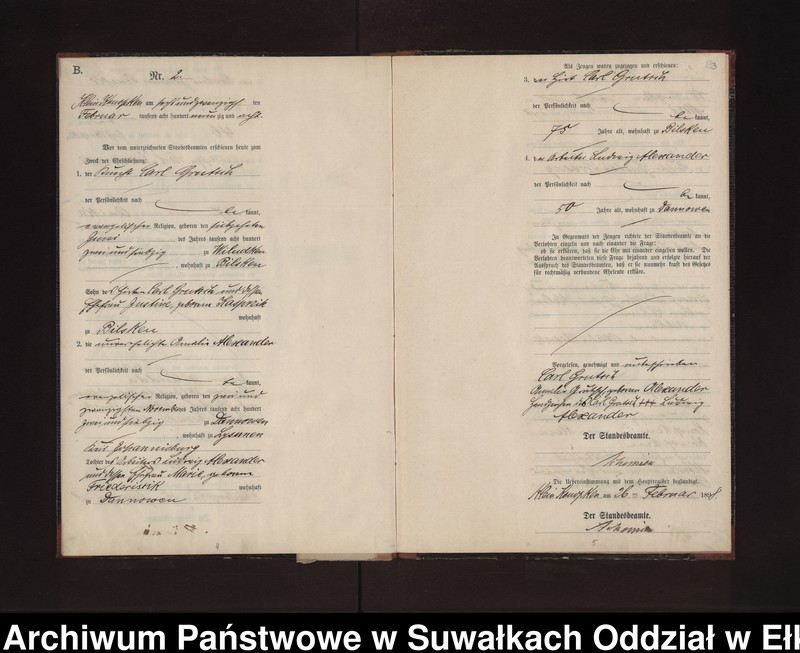 B.
Nr. 2.
Klein Konopken am sechsundzwanzigsten
Februar tausend acht hundert neunzig und acht.
Vor dem unterzeichneten Standesbeamten erschienen heute zum
Zweck der Eheschließung:
1. der Knecht Carl
der Persönlichkeit nach
be kannt,
evangelischer Religion, geboren den siebzehnten
Juni des Jahres tausend acht hundert
zweiundsiebzig zu
, wohnhaft zu Bilsken
Sohn des Hirten Carl und dessen
Ehefrau Justine, geborene
wohnhaft
zu Bilsken
2. die unverehelichte Amalie Alexander
der Persönlichkeit nach
be kannt,
evangelischer Religion, geboren den zwei und
zwanzigsten November des Jahres tausend acht hundert
zweiundsiebzig zu Dannowen
, wohnhaft zu Lysunen
Kreis Johannisburg
Tochter des Arbeiters Ludwig Alexander
und dessen Ehefrau Marie, geborene
wohnhaft
zu Dannowen
Als Zeugen waren zugezogen und erschienen:
3. der Hirt Carl
der Persönlichkeit nach
be kannt,
75 Jahre alt, wohnhaft zu Bilsken
4. der Arbeiter Ludwig Alexander
der Persönlichkeit nach
be kannt,
50 Jahre alt, wohnhaft zu Dannowen
In Gegenwart der Zeugen richtete der Standesbeamte an die
Verlobten einzeln und nach einander die Frage:
ob sie erklären, daß sie die Ehe mit einander eingehen wollen. Die
Verlobten beantworteten diese Frage bejahend und erfolgte hierauf der
Ausspruch des Standesbeamten, daß er sie nunmehr kraft des Gesetzes
für rechtmäßig verbundene Eheleute erkläre.
Vorgelesen, genehmigt und unterschrieben
Carl
Amalie geborene Alexander
Handzeichen des Carl +++ Ludwig
Alexander
Der Standesbeamte.
Die Uebereinstimmung mit dem Hauptregister beglaubigt.
Klein Konopken am 26 ten Februar 1898.
Der Standesbeamte.
Archiwum Państwowe w Suwałkach Oddział w Ełk